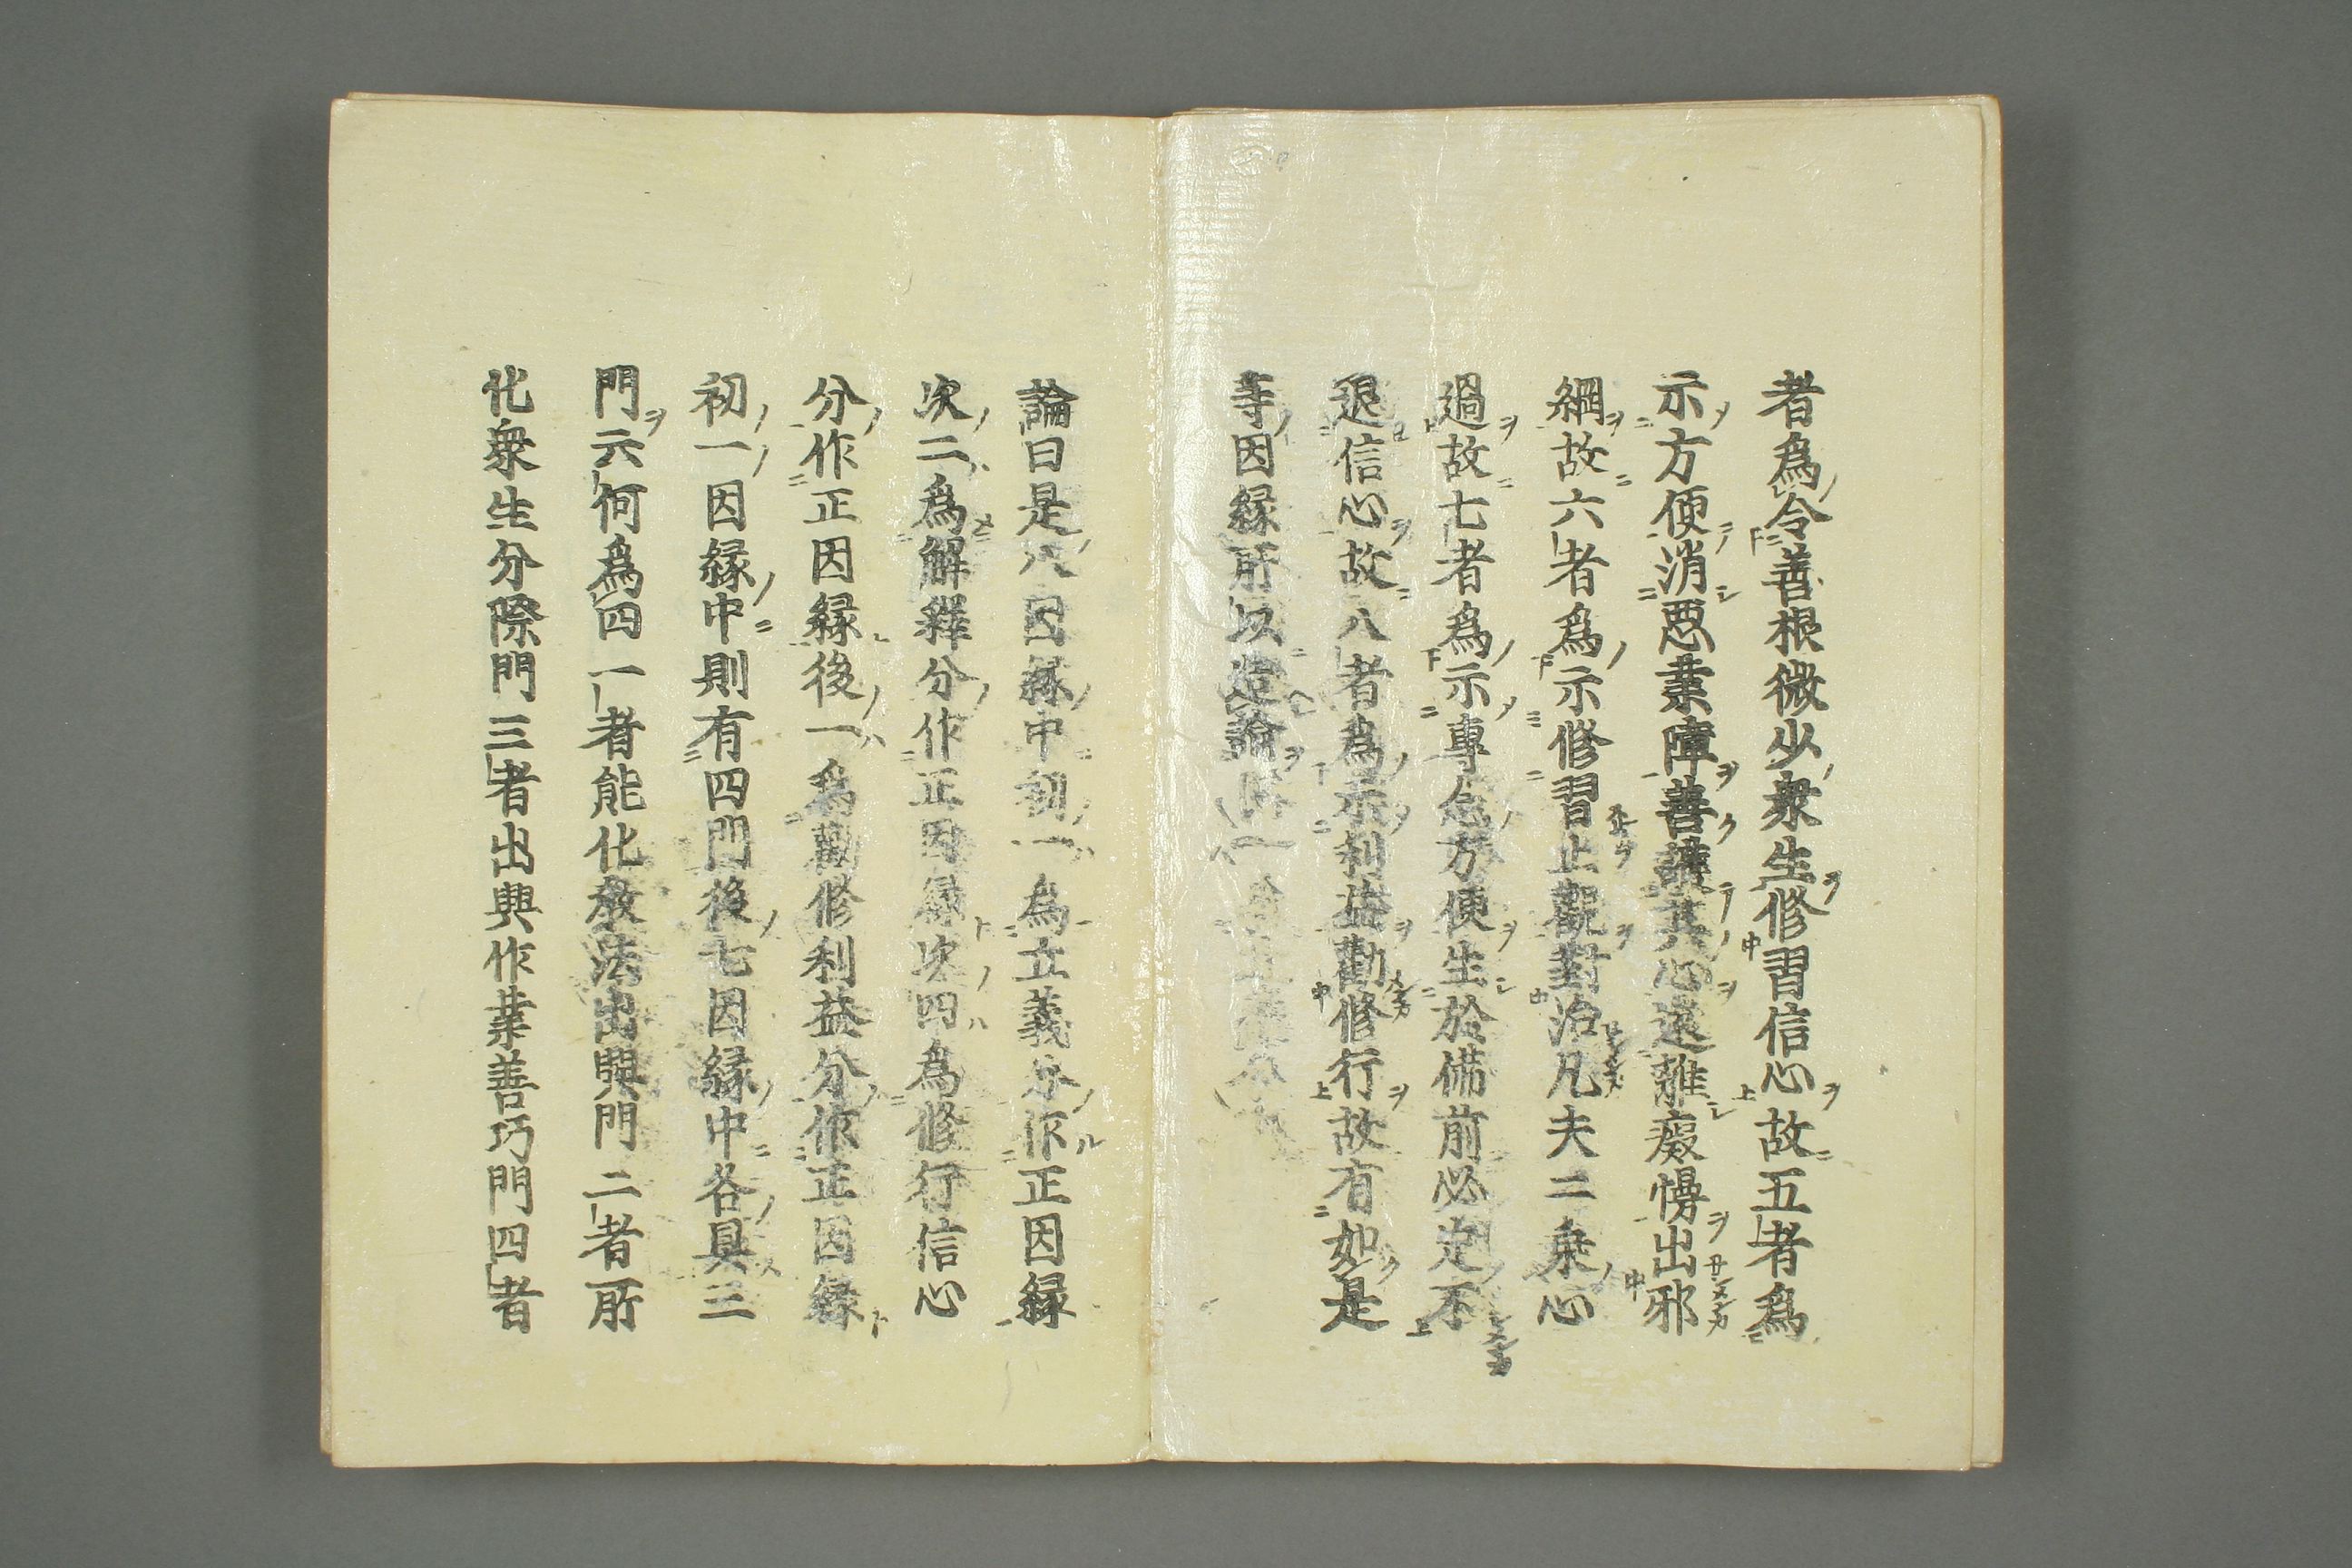 者爲令善根微少衆生修習信心故五者爲
示方便消惡業障善護其心遠離癡慢出邪
網故六者爲示修習止觀對治凡夫二乗心
過故七者爲示專念方便生於佛前必定不
退信心故八者爲示利益勸修行故有如是
等因縁所以造論
論曰是八因縁中初一爲立義分作正因縁
次二爲解釋分作正因縁次四爲修行信心
分作正因縁後一爲勸修利益分作正因縁
初一因縁中則有四門後七因縁中各具三
門云何爲四一者能化教法出興門二者所
化衆生分際門三者出興作業善巧門四者